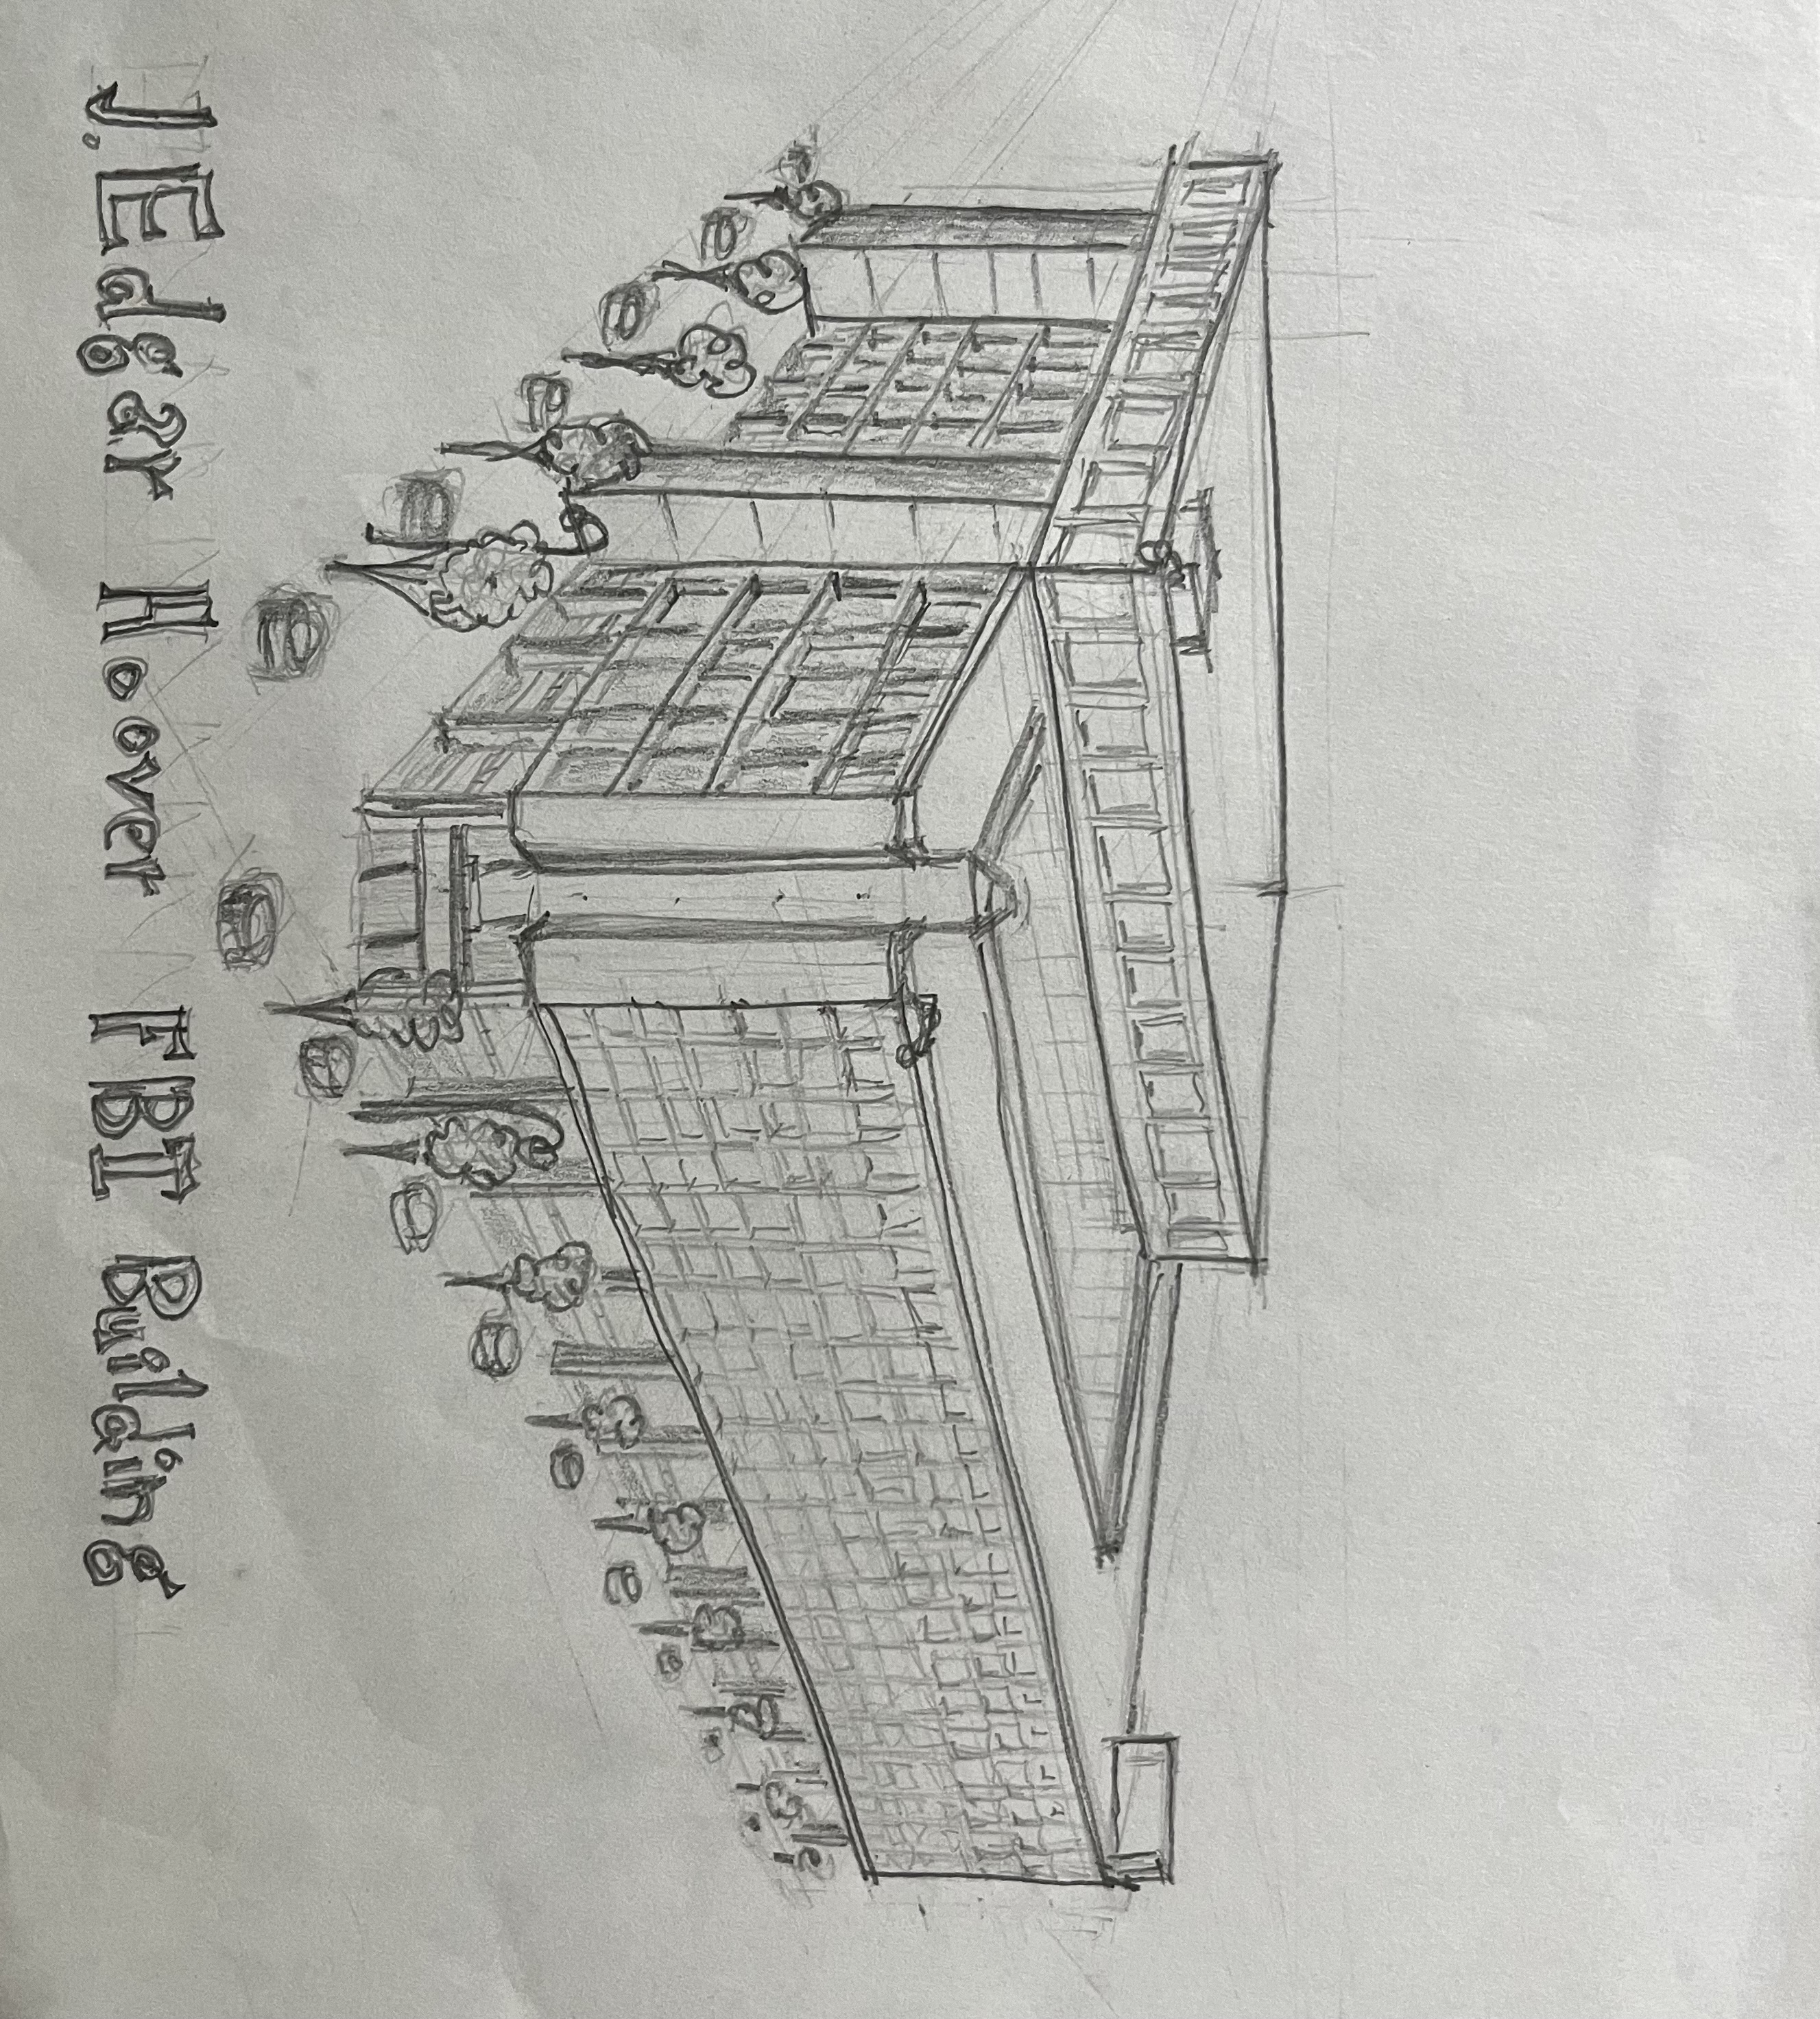 J. Edgar Hoover FBI Building